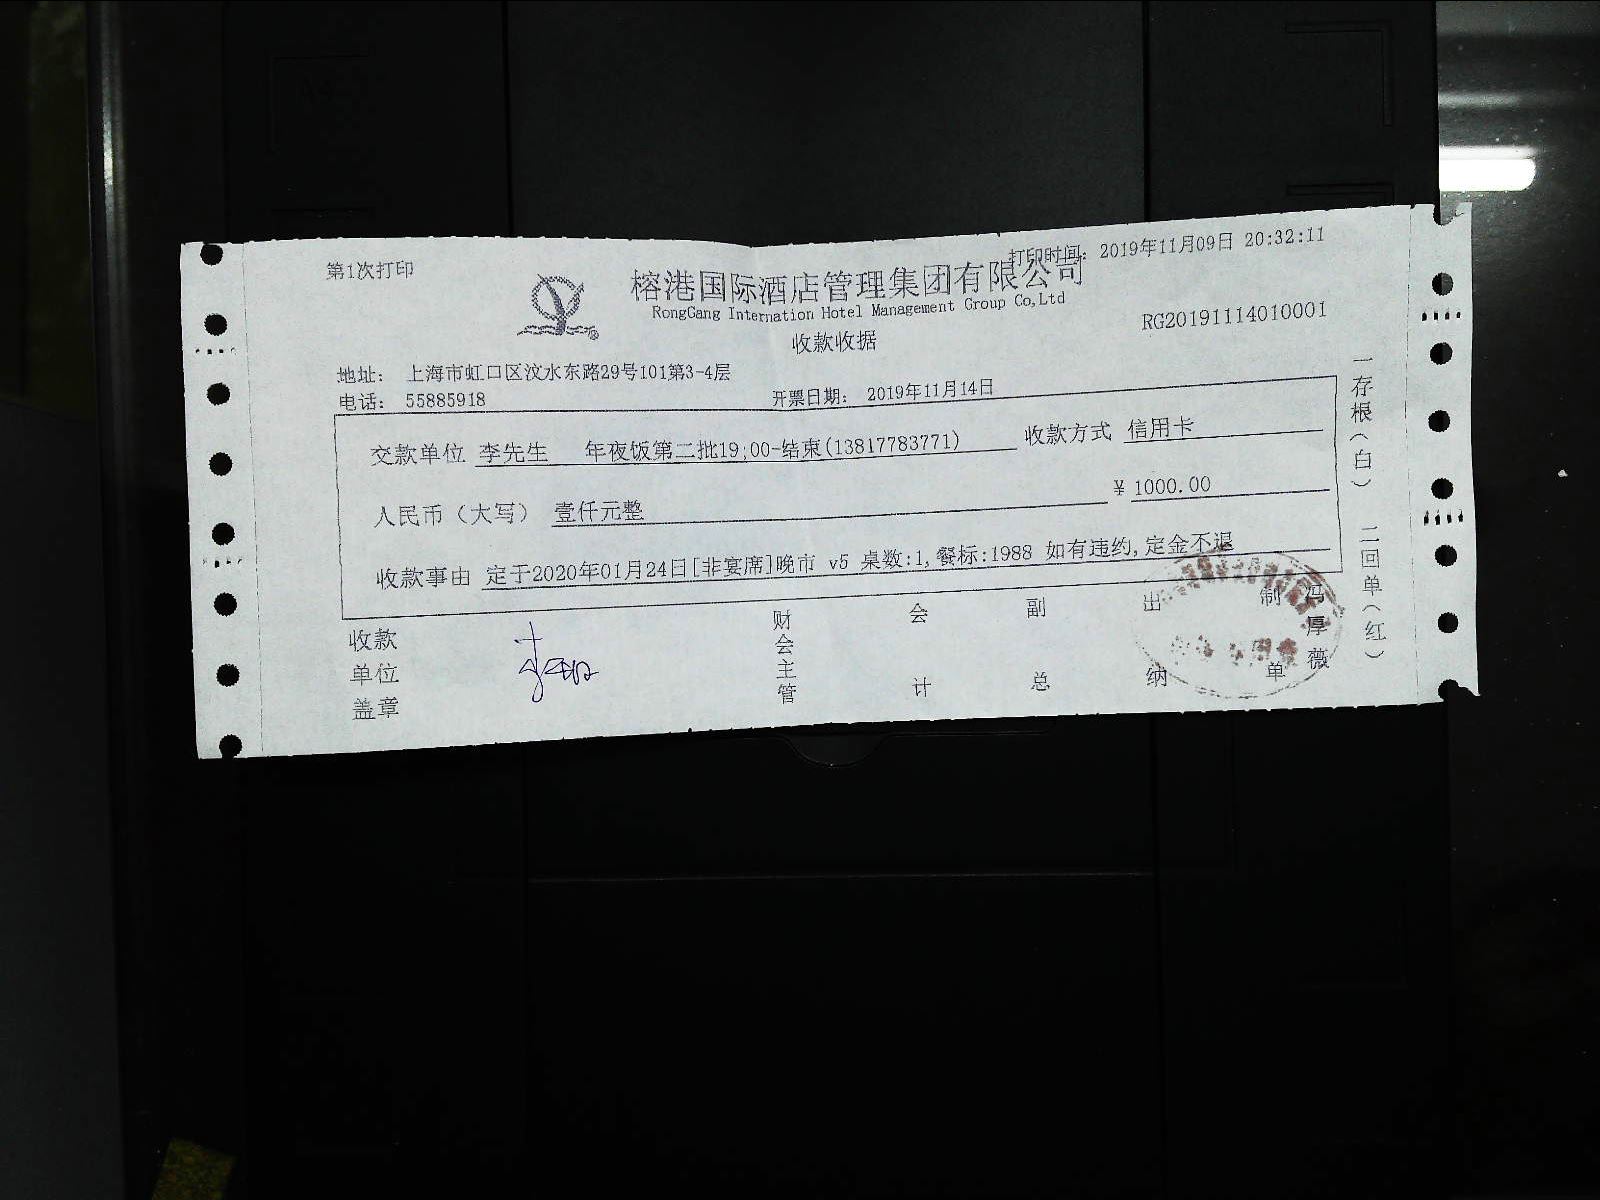 第1次打印
打印时间：2019年11月09日 20:32:11
榕港国际酒店管理集团有限公司
RongGang Internation Hotel Management Group Co,Ltd
RG20191114010001
收款收据
地址： 上海市虹口区汶水东路29号101第3-4层
电话： 55885918
开票日期： 2019年11月14日
交款单位 李先生 年夜饭第二批19;00-结束(13817783771) 收款方式 信用卡
人民币（大写） 壹仟元整 ¥ 1000.00
收款事由 定于2020年01月24日[非宴席]晚市 v5 桌数:1,餐标:1988 如有违约,定金不退
收款单位盖章
财会主管
会计
副总
出纳
制单
冯厚薇
一存根(白) 二回单(红)